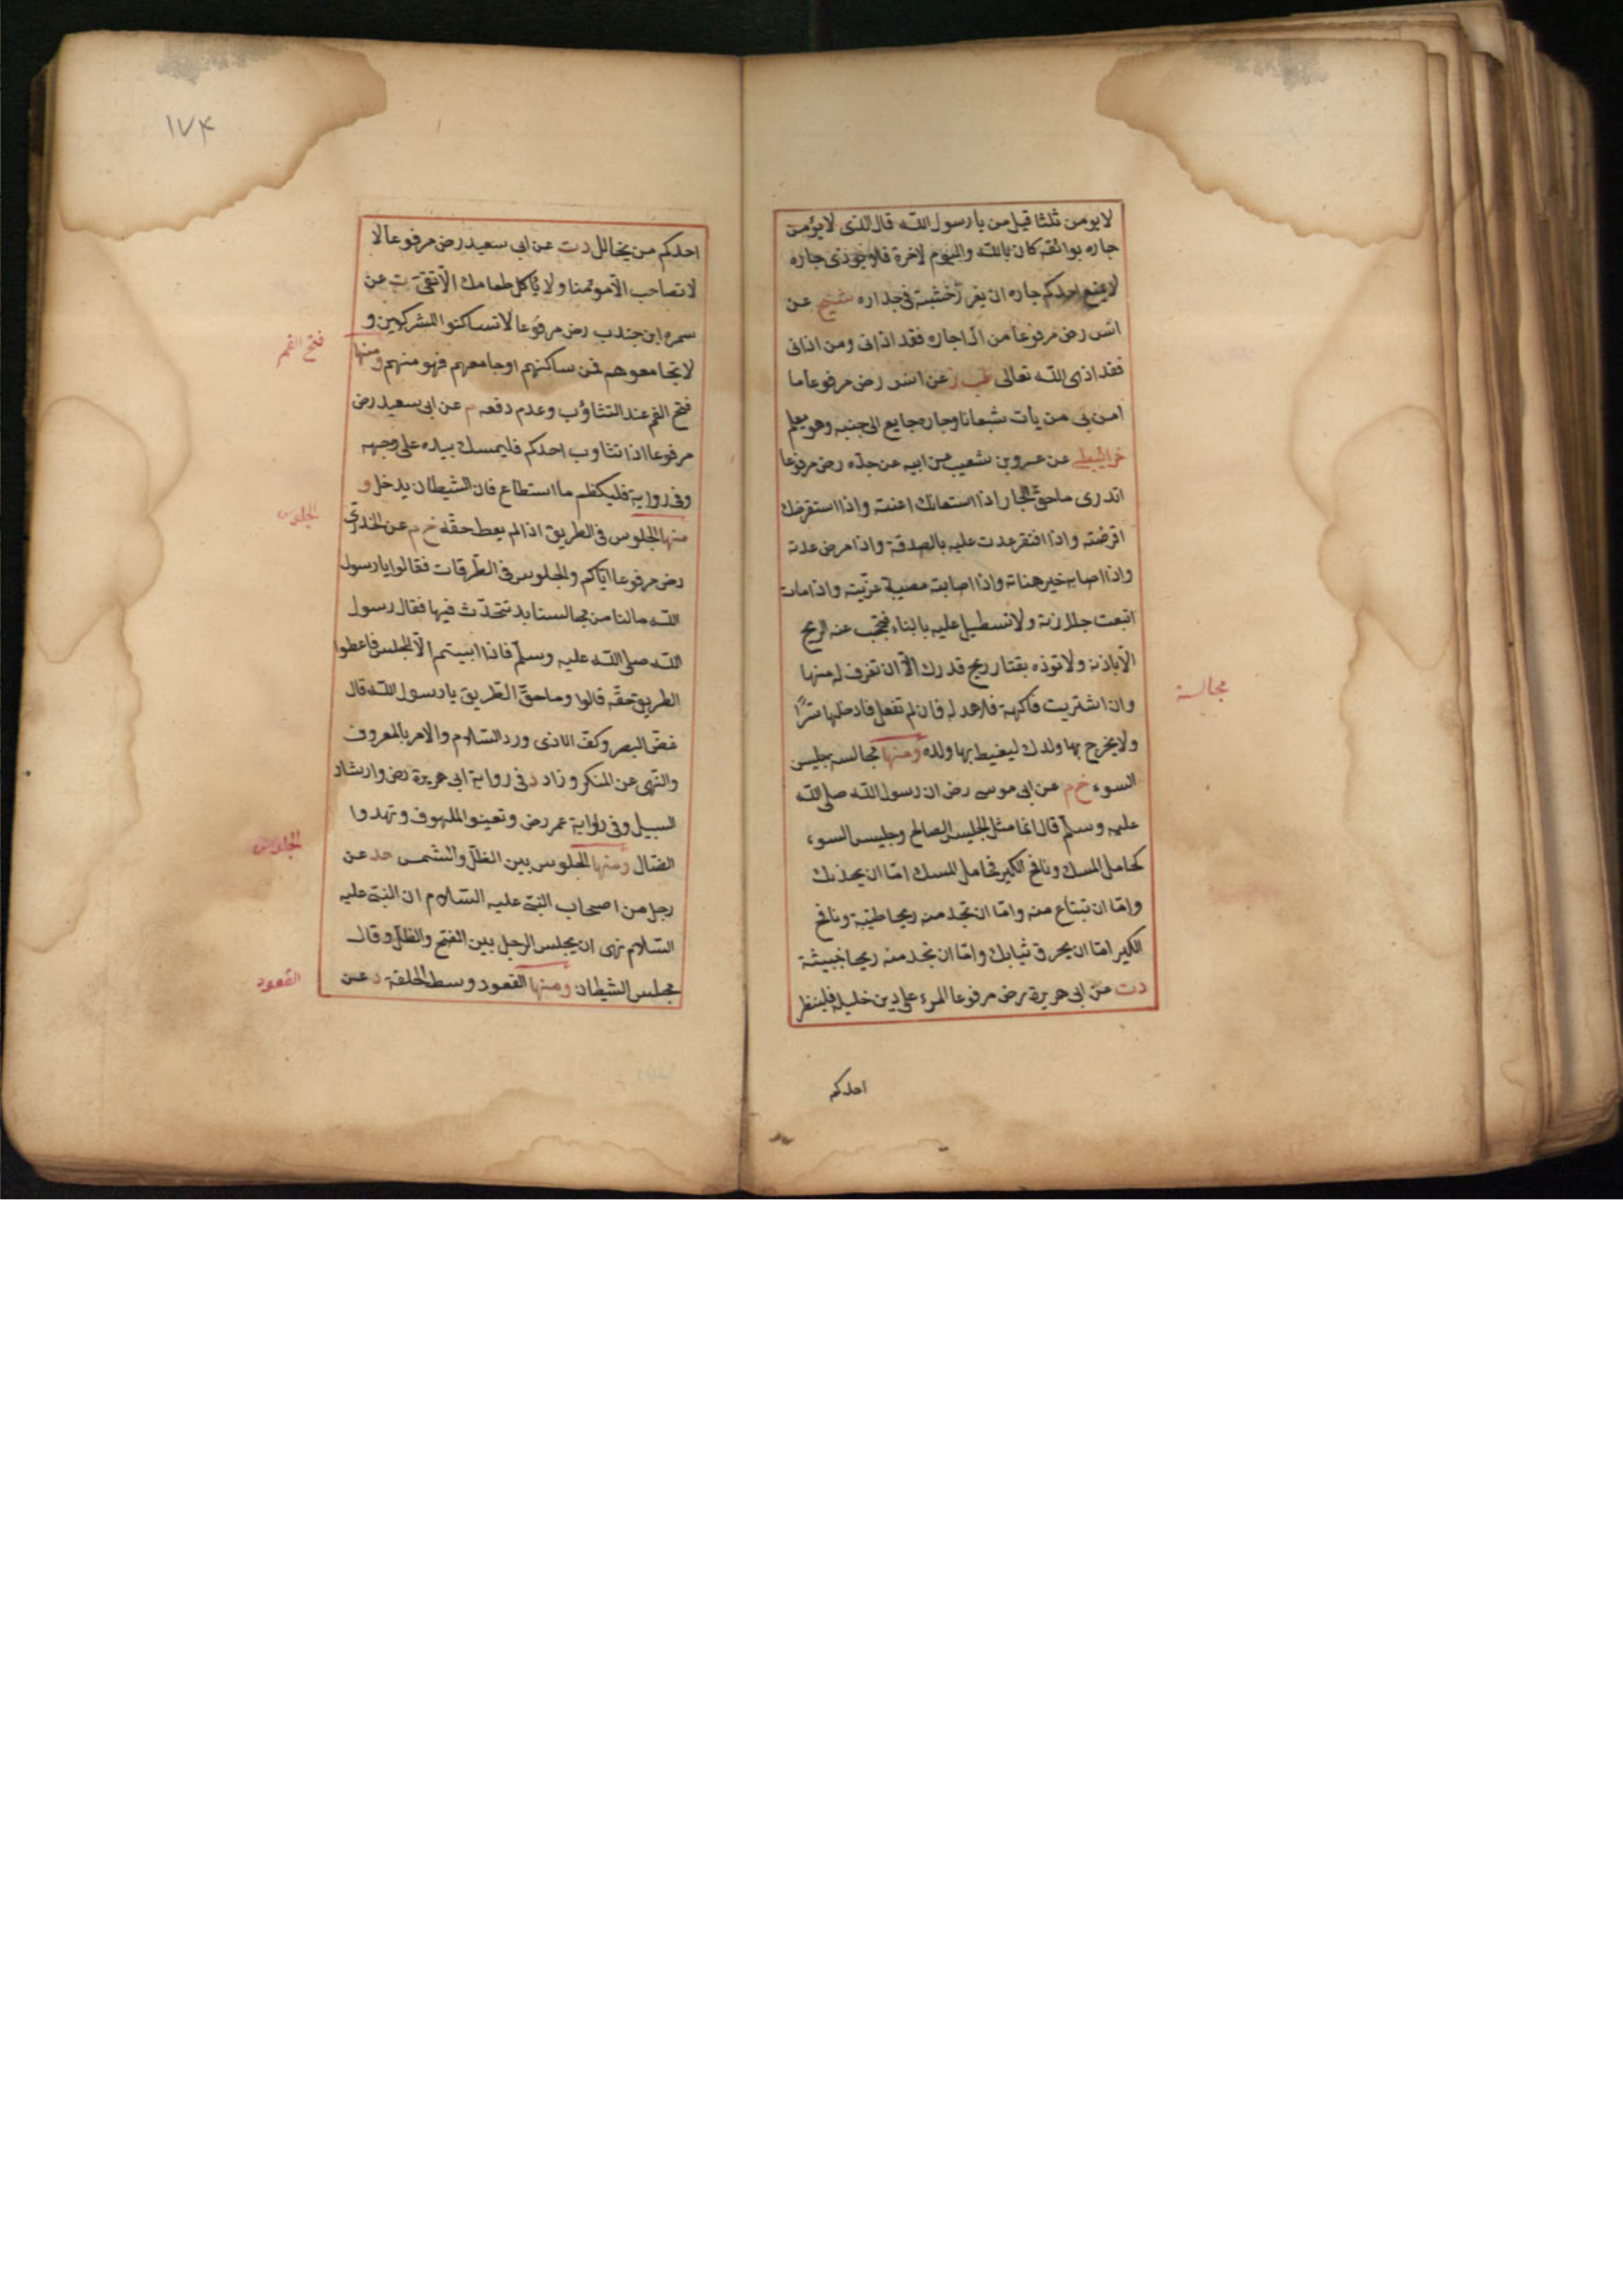 لا يومن ثلثا قيل من يا رسول الله قال الذى لا يؤمن
جاره بوائقه كان بالله واليوم لاخرة فلا يوذى جاره
لا يمنع احدكم جاره ان يغرز خشبة فى جداره شيخ عن
انس رض مرفوعا من اذا جاره فقد اذانى ومن اذانى
فقد اذى الله تعالى طب ز عن انس رض مرفوعا ما
امن بى من يأت شبعانا وجاره جايع الى جنبه وهو يعلم
خرائيطى عن عمرو بن شعيب عن ابيه عن جده رض مرفوعا
اتدرى ما حق الجار اذا استعانك اعنته واذا استقرضك
اقرضته واذا افتقر عدت عليه بالصدقة واذا مرض عدته
واذا اصابه خير هناته واذا اصابته مصيبة عزيته واذا مات
اتبعت جنازته ولا تسطيل عليه بالبناء فتحجب عنه الريح
الا باذنه ولا توذه بقتار ريح قدرك الا ان تغرف له منها
وان اشتريت فاكهة فلاهد له فان لم تفعل فادخلها سرا
ولا يخرج بها ولدك ليغيط بها ولده ومنها مجالسه جليس
السوء خ م عن ابى موسى رض ان رسول الله صلى الله
عليه وسلم قال انما مثل الجليس الصالح وجليس السوء
كحامل المسك ونافخ الكير فحامل المسك اما ان يحذيك
واما ان تبتاع منه واما ان تجد منه ريحا طيبة ونافخ
الكير اما ان يحرق ثيابك واما ان تجد منه ريحا خبيثة
دت عن ابى هريرة رض مرفوعا المرء على دين خليله فلينظر
احدكم
مجالسة
١٧٤
احدكم من يخالل دت عن ابى سعيد رض مرفوعا لا
لا تصاحب الا مومنا ولا ياكل طعامك الا تقى ت عن
سمره ابن جندب رض مرفوعا لا تساكنوا المشركين و
لا تجامعوهم فمن ساكنهم او جامعهم فهو منهم ومنها
فتح الفم عند التثاؤب وعدم دفعه م عن ابى سعيد رض
مرفوعا اذا تثاوب احدكم فليمسك بيده على وجهه
وفى رواية فليكظم ما استطاع فان الشيطان يدخل و
منها الجلوس فى الطريق اذا لم يعط حقه خ م عن الخدرى
رض مرفوعا اياكم والجلوس فى الطرقات فقالوا يا رسول
الله ما لنا من مجالسنا بد نتحدث فيها فقال رسول
الله صلى الله عليه وسلم فاذا ابيتم الا المجلس فاعطوا
الطريق حقه قالوا وما حق الطريق يا رسول الله قال
غض البصر وكف الاذى ورد السلام والامر بالمعروف
والنهى عن المنكر وزاد د فى رواية ابى هريرة رض وارشاد
السبيل وفى رواية عمر رض وتعينو الملهوف وتهدوا
الضال ومنها الجلوس بين الظل والشمس حد عن
رجل من اصحاب النبى عليه السلام ان النبى عليه
السلام نهى ان يجلس الرجل بين الضح والظل وقال
مجلس الشيطان ومنها القعود وسط الحلقة د عن
فتح الفم
الجلوس
الجلوس
القعود